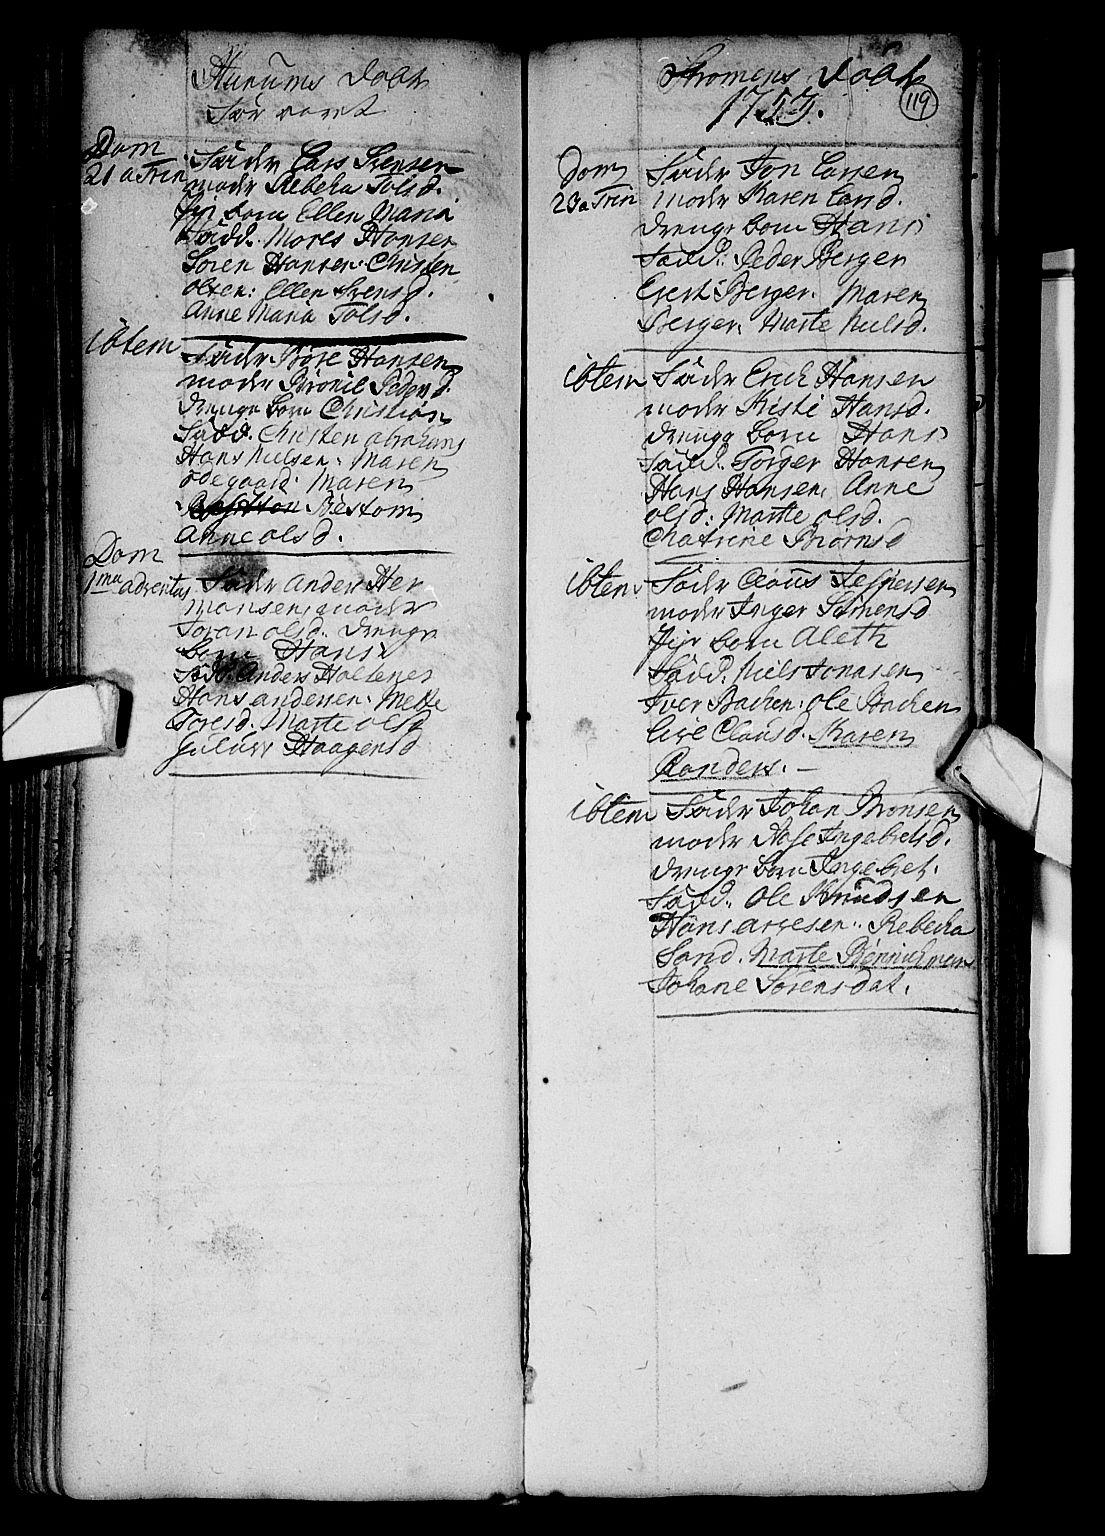 Hurums Dobt
før
Dom
21 a Trin
Fader Lars Svensen
moder Rebecha Tolsd.
Pige barn Ellen Maria
Fadd. Mores Hansen
Soren Hansen. Christen
olsen: Ellen Svensd.
Anne Maria Tolsd.
ibtem
Fader Hansen
moder Pedersd.
Drenge barn Christian
Fadd. Christen abrahams
Hans Nielsen. Maren
odegaard. Maren
Bestom
Anne olsd.
Dom
1ma adventus
Fader Anders Her
mansen, moder
Joran olsd. Drenge
barn Hans
Fadd. Anders Holtenes
Hans andersen. Mette
Toresd. Marte olsd
Haagensd
Stromens Dobt
1753.
119
Dom
23 a Trin
Fader Jon Larsen
moder Karen Larsd.
Drenge barn Hans
Fadd: Peder Berger
Evert Berger. Maren
Berger. Marte Nielsd.
ibtem
Fader Erich Hansen
moder Kisti Hansd.
Drenge barn Hans
Fadd. Torger Hansen
Hans Hansen, Anne
olsd: Marthe olsd.
Chatrine Biørnsd
ibtem
Fader Claus Jespersen
moder Inger Simensd
Pige barn Aleth
Fadd. Niels Jonasen
Iver Bachen. Ole Bachen
Lise Clausd. Karen
Randers.
ibtem
Fader Johan Bronsen
moder Aase Ingebretsd.
Drenge barn Ingebret.
Fadd. Ole Knudsen
Hans aresen. Rebecha
Sand. Marte Bennichmans
Johane Sorensdat.